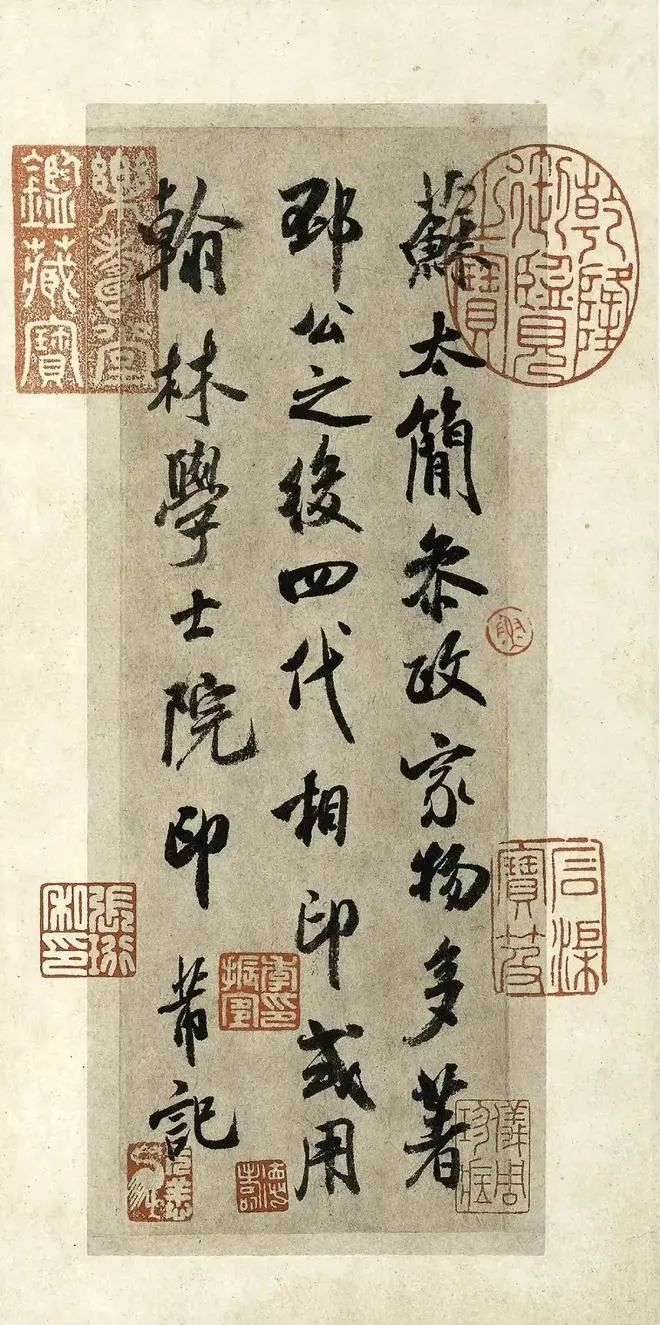 蘇太簡叅政家物多著
邳公之後四代相印或用
翰林學士院印 芾記
乾隆御覽之寶
樂壽堂鑑藏寶
石渠寶笈
張珩私印
儀周珍藏